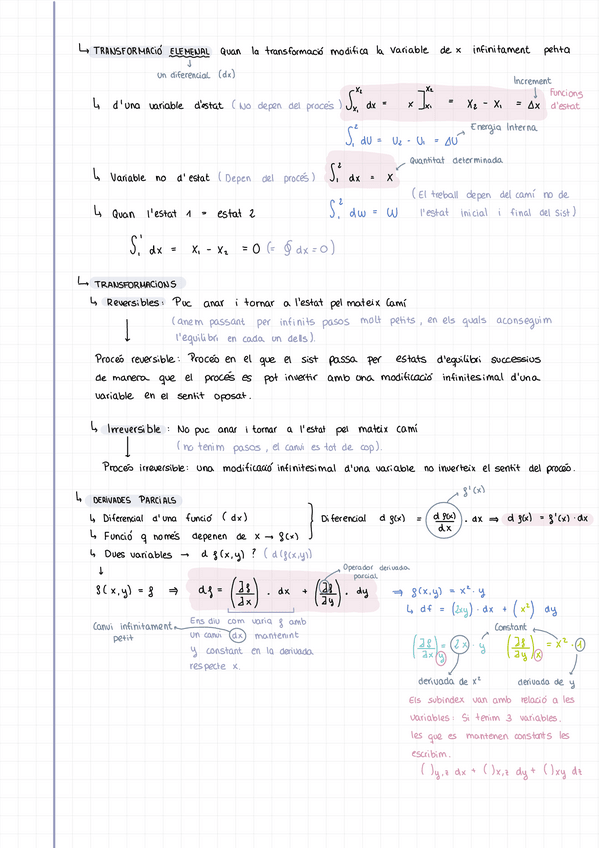 ↳ TRANSFORMACIÓ ELEMENAL Quan la transformació modifica la variable de x infinitament petita
un diferencial (dx)
Increment
↳ d'una variable d'estat (No depen del procés) ∫_{x₁}^{x₂} dx = x]_{x₁}^{x₂} = x₂ - x₁ = Δx Funcions d'estat
∫₁² dU = U₂ - U₁ = ΔU Energia Interna
↳ Variable no d'estat (Depen del procés) ∫₁² dx = x Quantitat determinada
↳ Quan l'estat 1 = estat 2 ∫₁² dw = W (El treball depen del camí no de
l'estat inicial i final del sist)
∫₁¹ dx = x₁ - x₂ = 0 (= ∮ dx = 0)
↳ TRANSFORMACIONS
↳ Reversibles: Puc anar i tornar a l'estat pel mateix camí
(anem passant per infinits pasos molt petits, en els quals aconseguim
l'equilibri en cada un dells).
Procés reversible: Procés en el que el sist passa per estats d'equilibri successius
de manera que el procés es pot invertir amb una modificació infinitesimal d'una
variable en el sentit oposat.
↳ Irreversible: No puc anar i tornar a l'estat pel mateix camí
(no tenim pasos, el canvi es tot de cop).
Procés irreversible: una modificació infinitesimal d'una variable no inverteix el sentit del procés.
↳ DERIVADES PARCIALS
f'(x)
↳ Diferencial d'una funció (dx)
↳ Funció q només depenen de x → f(x) } Diferencial d f(x) = (d f(x)/dx) . dx ⇒ d f(x) = f'(x) · dx
↳ Dues variables → d f(x,y) ? (d(f(x,y))
Operador derivada parcial
f(x,y) = f ⇒ df = (∂f/∂x) . dx + (∂f/∂y) . dy ⇒ f(x,y) = x² · y
↳ df = (2xy) · dx + (x²) dy
Canvi infinitament petit
Ens diu com varia f amb
un canvi (dx) mantenint
y constant en la derivada
respecte x.
Constant
(∂f/∂x)y = 2x · y (∂f/∂y)x = x² · 1
derivada de x² derivada de y
Els subindex van amb relació a les
variables: Si tenim 3 variables.
les que es mantenen constants les
escribim.
( )y,z dx + ( )x,z dy + ( )xy dz